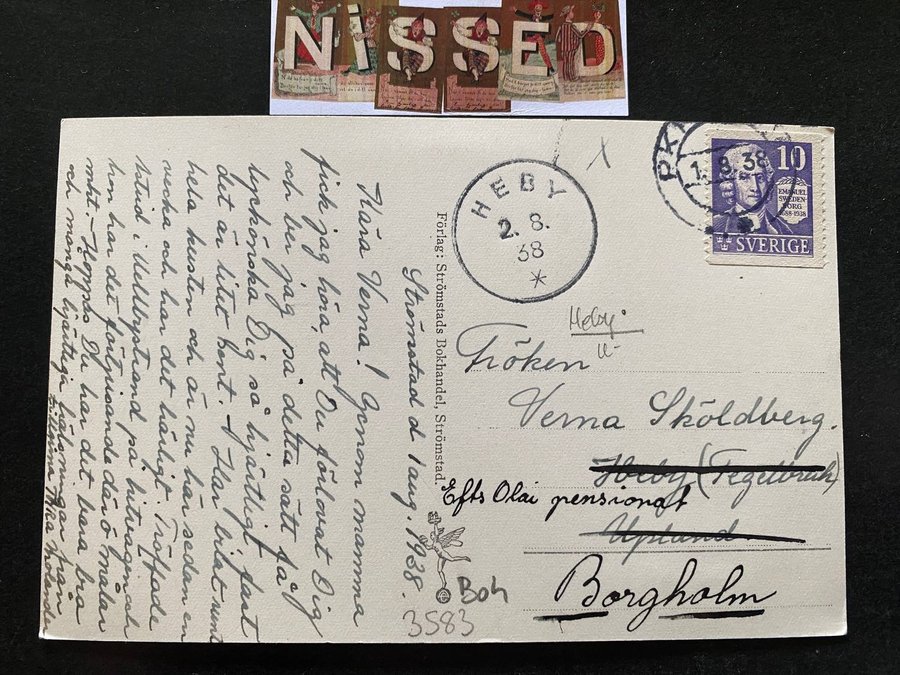 NISSED
HEBY
2. 8.
38
*
1. 8. 38
10
EMANUEL
SWEDEN-
BORG
1688-1938
SVERIGE
X
Heby
Fröken
Verna Sköldberg.
Heby (Tegelbruk)
Efts Olai pensionat
Upland.
Borgholm
Boh
3583
Förlag: Strömstads Bokhandel, Strömstad.
Strömstad d 1 aug. 1938.
Kära Verna! Genom mamma
fick jag höra, att Du förlovat Dig
och ber jag på detta sätt få
lyckönska Dig så hjärtligt fast
det är litet sent. Har bilat runt
hela kusten och är nu här sedan en
vecka och har det härligt. Träffade
på
hon har det förtjusande där o målar
mkt. - Hoppas Du har det bara bra
och många hjärtliga hälsningar från